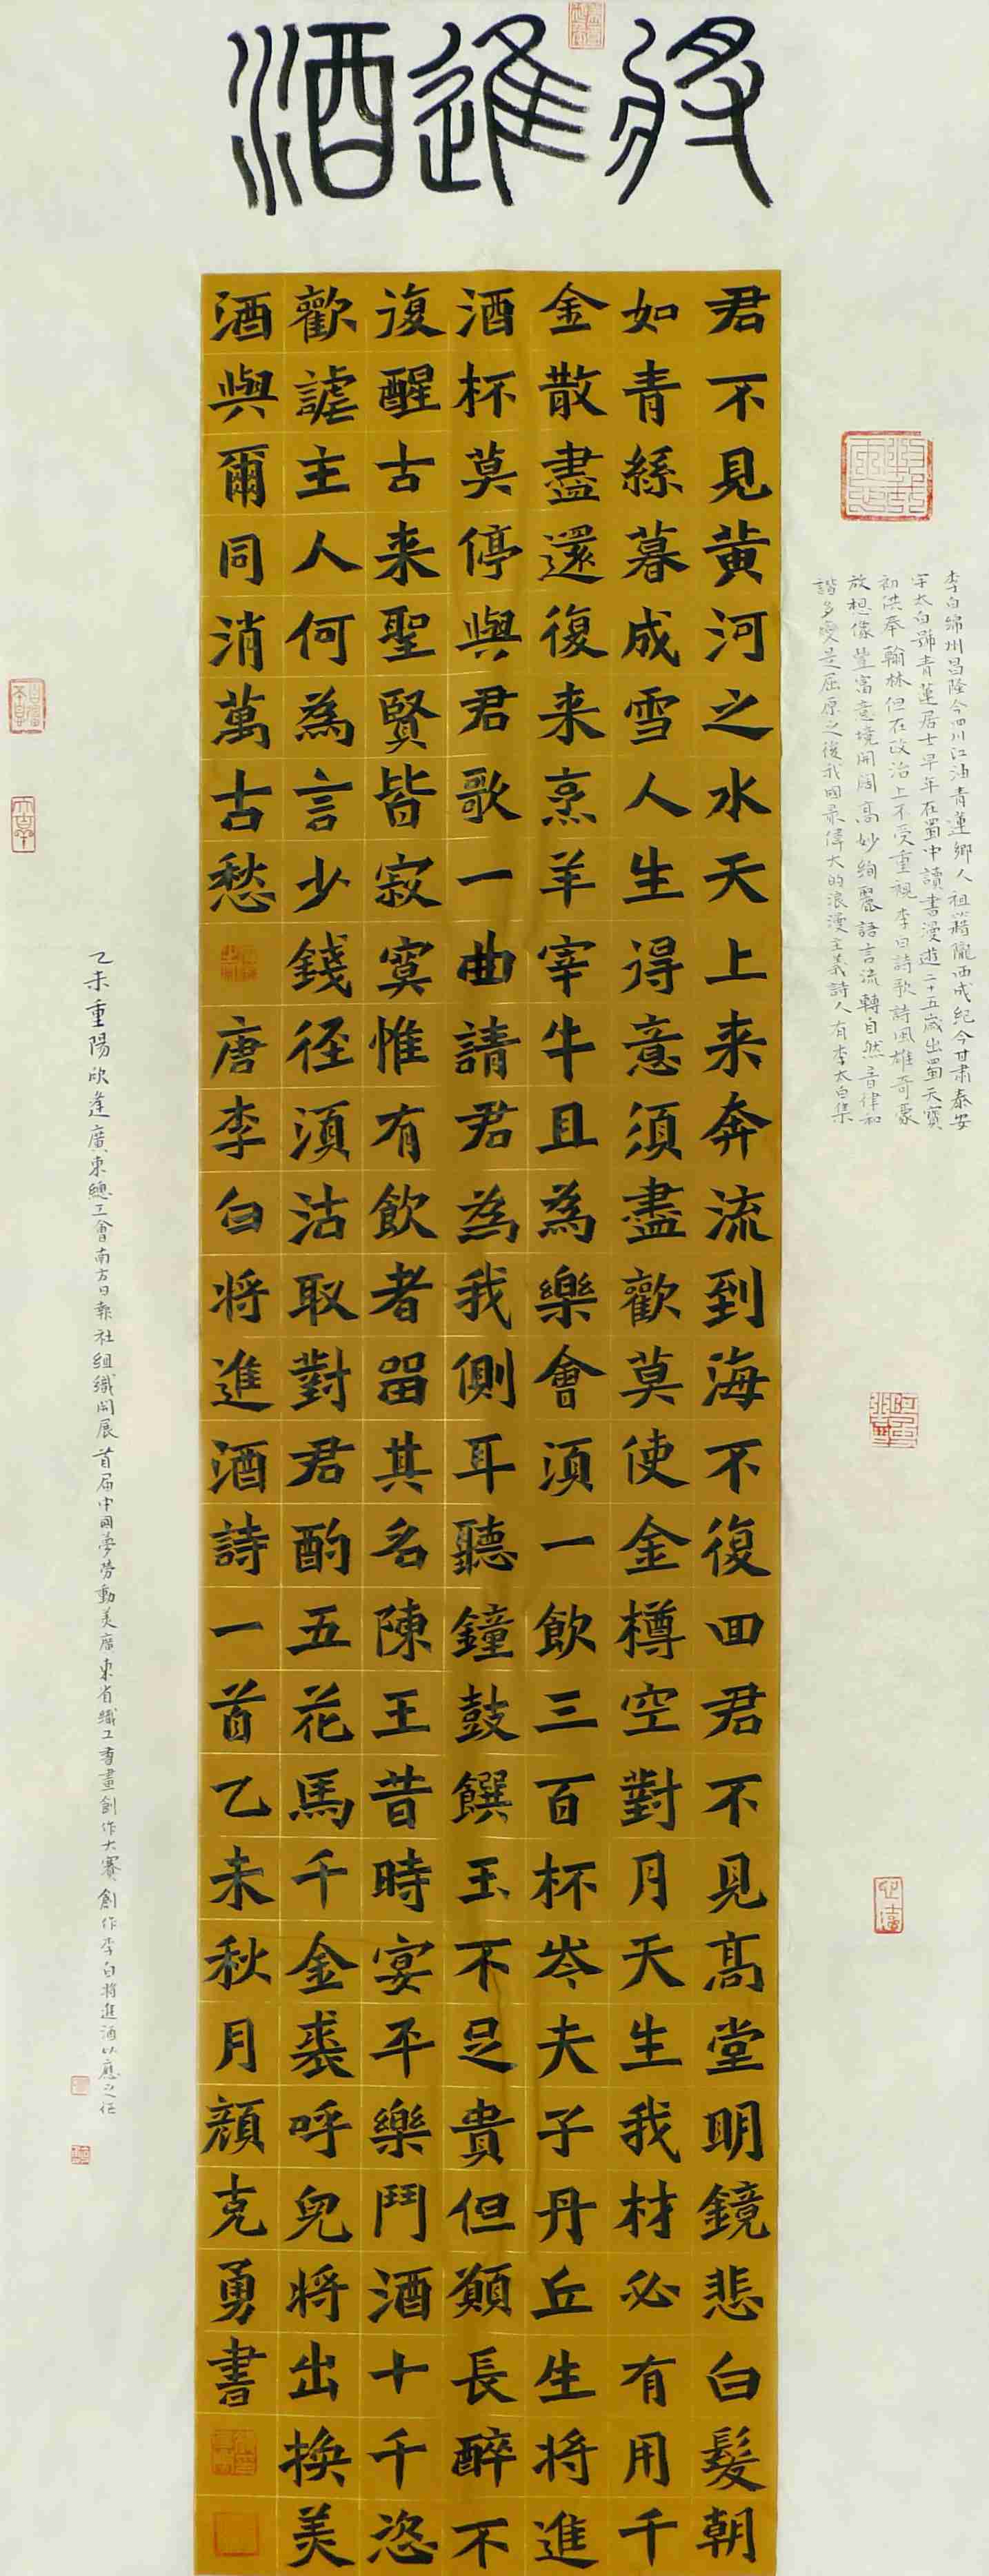 將進酒
君不見黃河之水天上来奔流到海不復回君不見高堂明鏡悲白髮朝
如青絲暮成雪人生得意須盡歡莫使金樽空對月天生我材必有用千
金散盡還復来烹羊宰牛且為樂會須一飲三百杯岑夫子丹丘生将進
酒杯莫停與君歌一曲請君為我側耳聽鐘鼓饌玉不足貴但願長醉不
復醒古来聖賢皆寂寞惟有飲者留其名陳王昔時宴平樂鬥酒十千恣
歡謔主人何為言少錢径須沽取對君酌五花馬千金裘呼兒将出換美
酒與爾同消萬古愁
唐李白将進酒詩一首乙未秋月顏克勇書
李白綿州昌隆今四川江油青蓮鄉人祖籍隴西成紀今甘肅泰安
字太白號青蓮居士早年在蜀中讀書漫遊二十五歲出蜀天寶
初供奉翰林但在政治上不受重視李白詩歌詩風雄奇豪
放想像豐富意境開闊高妙絢麗語言流轉自然音律和
諧多變是屈原之後我國最偉大的浪漫主義詩人有李太白集
乙未重陽欣逢廣東總工會南方日報社組織開展首届中國夢勞動美廣東省職工書畫創作大賽創作李白将進酒以應之